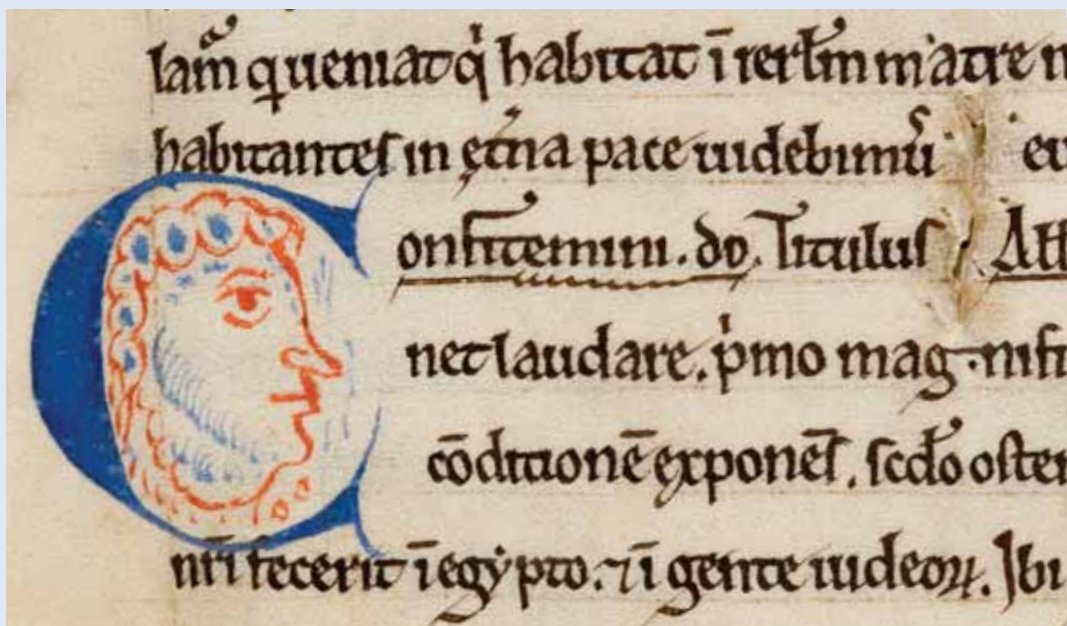 lam̃ queniat qͥ habitat ī ierłm m̕atre
habitanteſ in ęt̄na pace uidebimuſ
Confitemini. do. Tituluſ. Aƚƚ
net laudare. pͥmo mag nifi
cōditionē exponēſ. ſcdo oſten
nr̄i fecerit ī egẏpto. ⁊ ī gente iudeoꝝ. Ibi